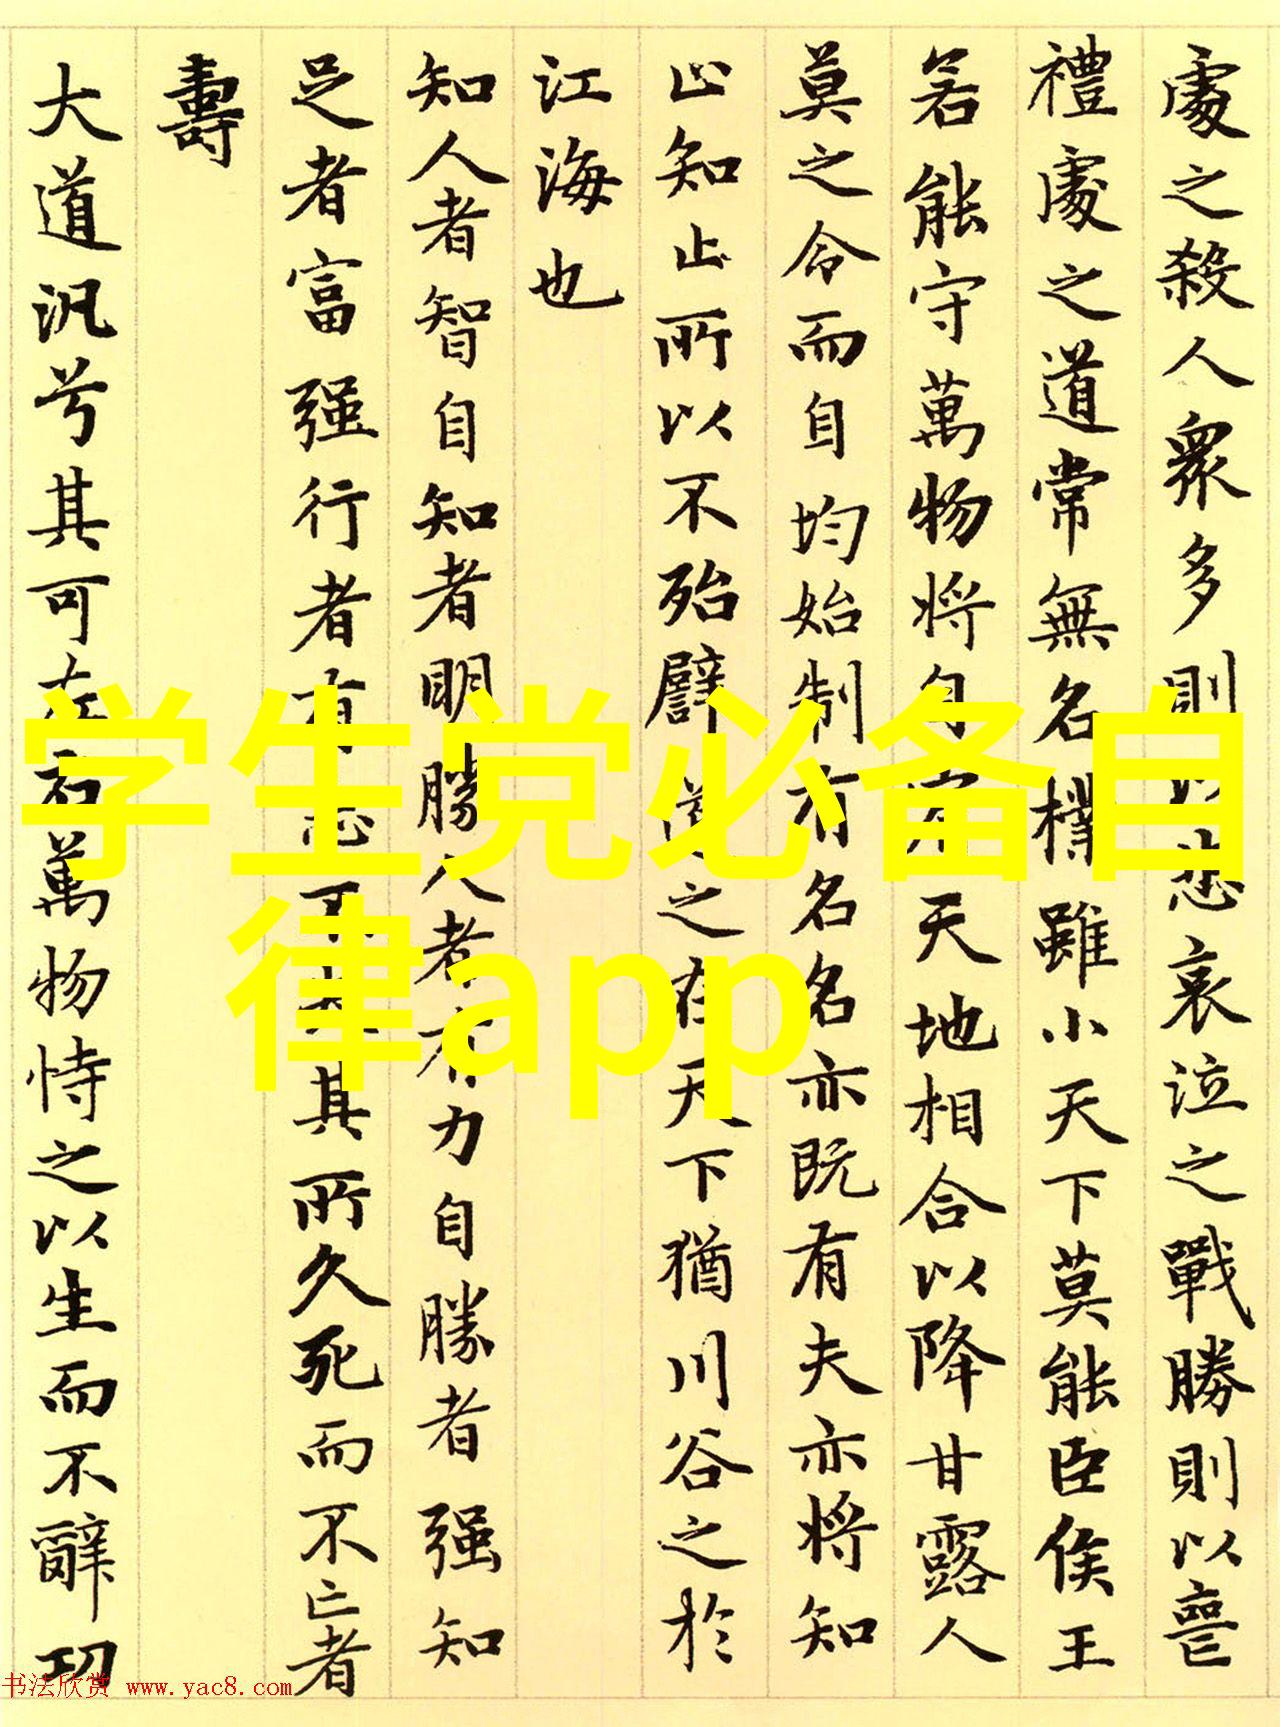 處之殺人衆多則以悲哀泣之戰勝則以喪
禮處之道常無名樸雖小天下莫能臣侯王
若能守萬物將自賓天地相合以降甘露人
莫之令而自均始制有名名亦既有夫亦將知
止知止所以不殆譬道之在天下猶川谷之於
江海也
知人者智自知者明勝人者有力自勝者强知
足者富强行者有志不失其所久死而不亡者
壽
大道汎兮其可左右萬物恃之以生而不辭功
学生党必备自
律app
书法欣赏 www.yac8.com